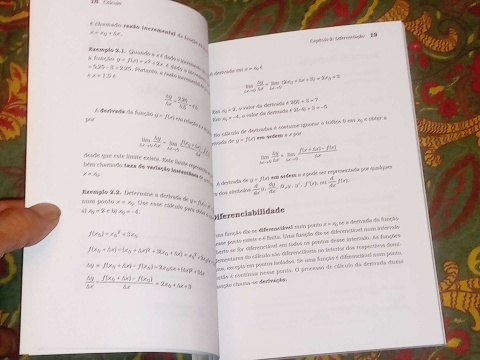 18 Cálculo
é chamado razão incremental da função em
x = x₀ + Δx.
Exemplo 2.1. Quando a x é dado o incremento
a função y = f(x) = x² + 2x é dado o incremento
= 5,25 – 3 = 2,25. Portanto, a razão incremental
e x = 1,5 é
Δy/Δx = 2,25/0,5 = 4,5
A derivada da função y = f(x) em relação a x
por
lim Δx→0 Δy/Δx = lim Δx→0 (f(x₀ + Δx) – f(x₀))/Δx
desde que este limite exista. Este limite
bém chamado taxa de variação instantânea
Exemplo 2.2. Determine a derivada de y = f(x)
num ponto x = x₀. Use esse cálculo para obter
a) x₀ = 2 e b) x₀ = –4.
f(x₀) = x₀² + 3x₀
f(x₀ + Δx) = (x₀ + Δx)² + 3(x₀ + Δx) = x₀²
Δy = f(x₀ + Δx) – f(x₀) = 2x₀Δx + (Δx)² + 3Δx
Δy/Δx = (f(x₀ + Δx) – f(x₀))/Δx = 2x₀ + Δx + 3
Capítulo 2: Diferenciação 19
A derivada em x = x₀ é
lim Δx→0 Δy/Δx = lim Δx→0 (2x₀ + Δx + 3) = 2x₀ + 3
Em x₀ = 2, o valor da derivada é 2(2) + 3 = 7
Em x₀ = –4, o valor da derivada é 2(–4) + 3 = –5
No cálculo de derivadas é comum ignorar o índice 0 em x₀ e obter a
derivada de y = f(x) em ordem a x por
lim Δx→0 Δy/Δx = lim Δx→0 (f(x + Δx) – f(x))/Δx
A derivada de y = f(x) em ordem a x pode ser representada por qualquer
dos símbolos d/dx y, dy/dx, Dₓy, y', f'(x), ou d/dx f(x).
Diferenciabilidade
Uma função diz-se diferenciável num ponto x = x₀ se a derivada da função
nesse ponto existe e é finita. Uma função diz-se diferenciável num intervalo
aberto se for diferenciável em todos os pontos desse intervalo. As funções
elementares do cálculo são diferenciáveis no interior dos respectivos domí-
nios, exceto em pontos isolados. Se uma função é diferenciável num ponto,
então é contínua nesse ponto. O processo de cálculo da derivada duma
função chama-se derivação.